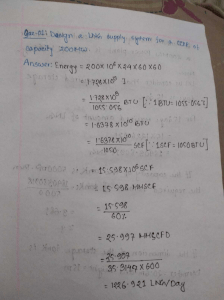 Que-06: Design a LNG supply system for a CCPP of
capacity 200MW.
Answer: Energy = 200×10⁶×24×60×60
= 1.728×10¹³ J
= 1.728×10¹³ / 1055.056 BTU [∵ 1 BTU = 1055.056 J]
= 1.6378×10¹⁰ BTU
= 1.6378×10¹⁰ / 1050 SCF [∵ 1 SCF = 1050 BTU]
= 15.598×10⁶ SCF
= 15.598 MMSCF
= 15.598 / 60%
= 25.997 MMSCFD
= 25.997 / 35.3147×600
= 1226.921 LNG/Day